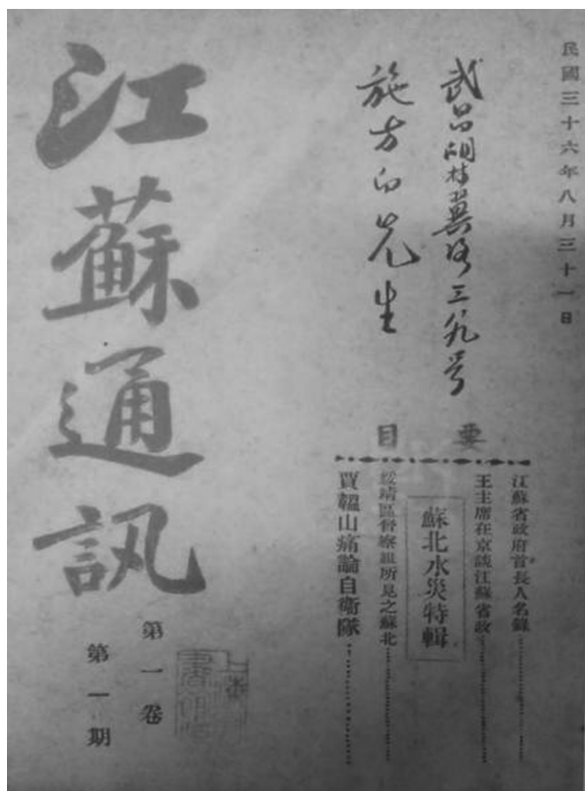 民國三十六年八月三十一日
武昌胡林翼路三九号
施方白先生
江蘇通訊
第一卷
第一期
要目
江蘇省政府首長人名錄
王主席在京談江蘇省政
蘇北水災特輯
綏靖區督察組所見之蘇北
賈韞山痛論自衛隊